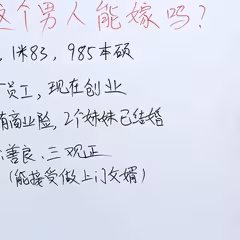 这个男人能嫁吗?
, 1米83, 985本硕
厂员工, 现在创业
有商业险, 2个妹妹已结婚
善良、三观正
(能接受做上门女婿)